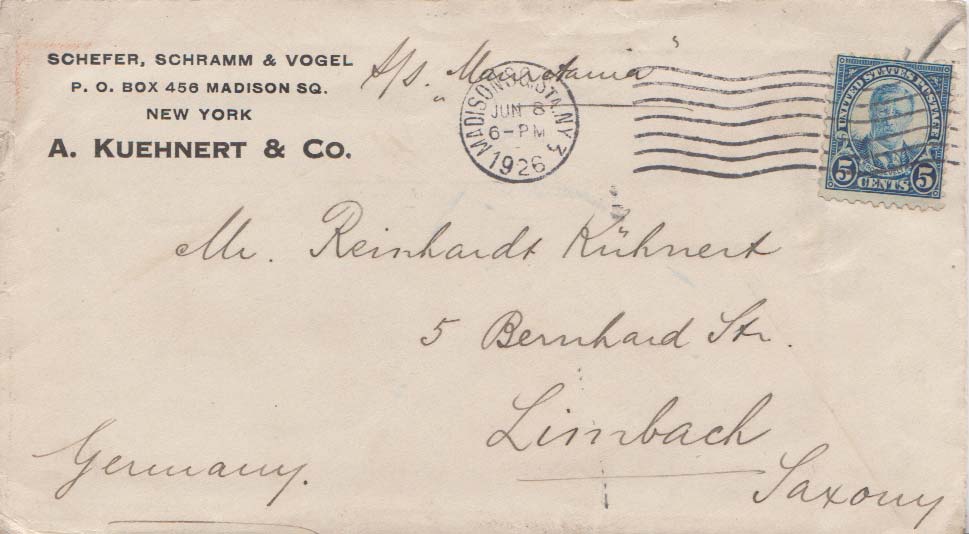 SCHEFER, SCHRAMM & VOGEL
P. O. BOX 456 MADISON SQ.
NEW YORK
A. KUEHNERT & CO.
S/S. "Mauretania"
MADISON SQ. STA. N.Y.
JUN 8
6-PM
1926
UNITED STATES POSTAGE
5 CENTS 5
Mr. Reinhardt Kühnert
5 Bernhard Str.
Limbach
Saxony
Germany.